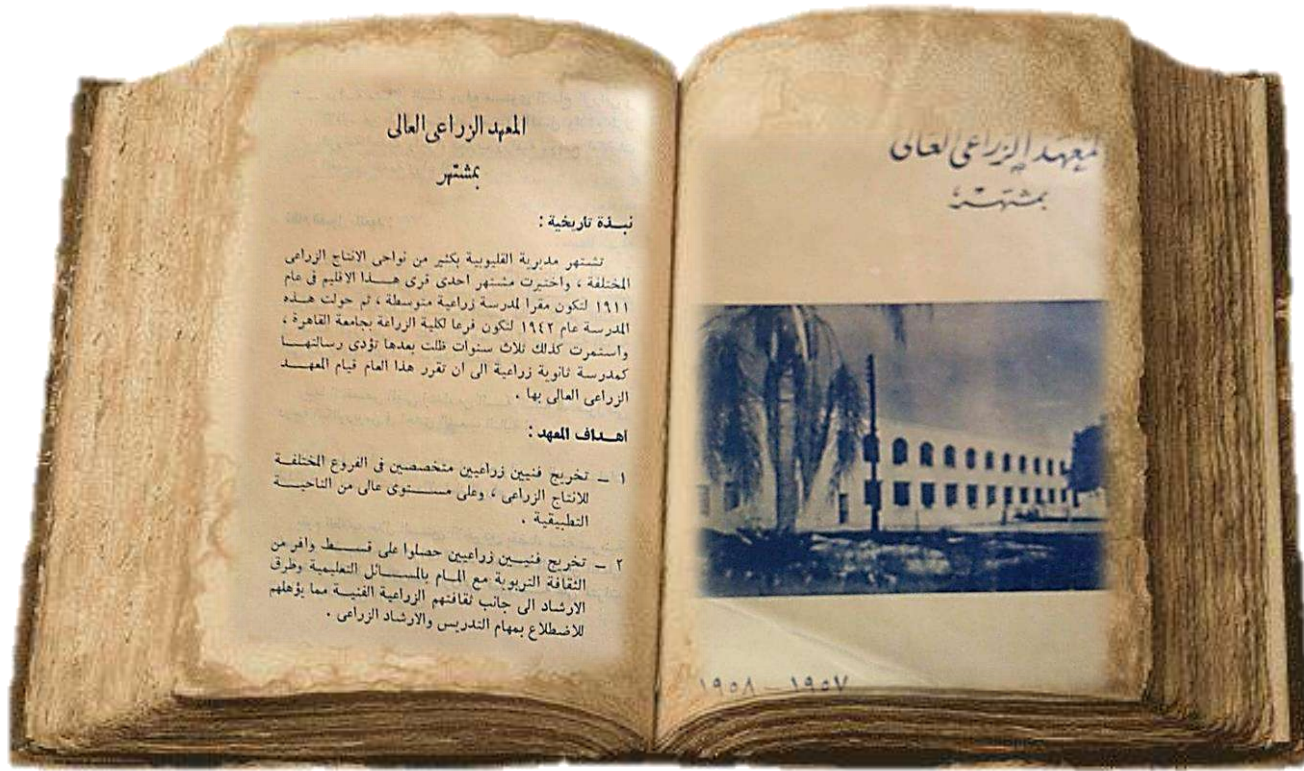 المعهد الزراعى العالى
بمشتهر
نبـذة تاريخية :
تشتهر مديرية القليوبية بكثير من نواحى الانتاج الزراعى
المختلفة ، واختيرت مشتهر احدى قرى هـــذا الاقليم فى عام
١٩١١ لتكون مقرا لمدرسة زراعية متوسطة ، ثم حولت هـذه
المدرسة عام ١٩٤٢ لتكون فرعا لكلية الزراعة بجامعة القاهرة ،
واستمرت كذلك ثلاث سنوات ظلت بعدها تؤدى رسالتهـــا
كمدرسة ثانوية زراعية الى ان تقرر هذا العام قيام المعهـــد
الزراعى العالى بها .
اهـداف المعهد :
١ ــ تخريج فنيين زراعيين متخصصين فى الفروع المختلفـة
للانتاج الزراعى ، وعلى مســـتوى عالى من الناحيـــة
التطبيقية .
٢ ــ تخريج فنيــين زراعيين حصلوا على قســط وافر من
الثقافة التربوية مع المـام بالمســـائل التعليمية وطرق
الارشاد الى جانب ثقافتهم الزراعية الفنيـة مما يؤهلهم
للاضطلاع بمهام التدريس والارشاد الزراعى .
لمعهد الزراعى العالى
بمشتهر
١٩٥٧ ــ ١٩٥٨